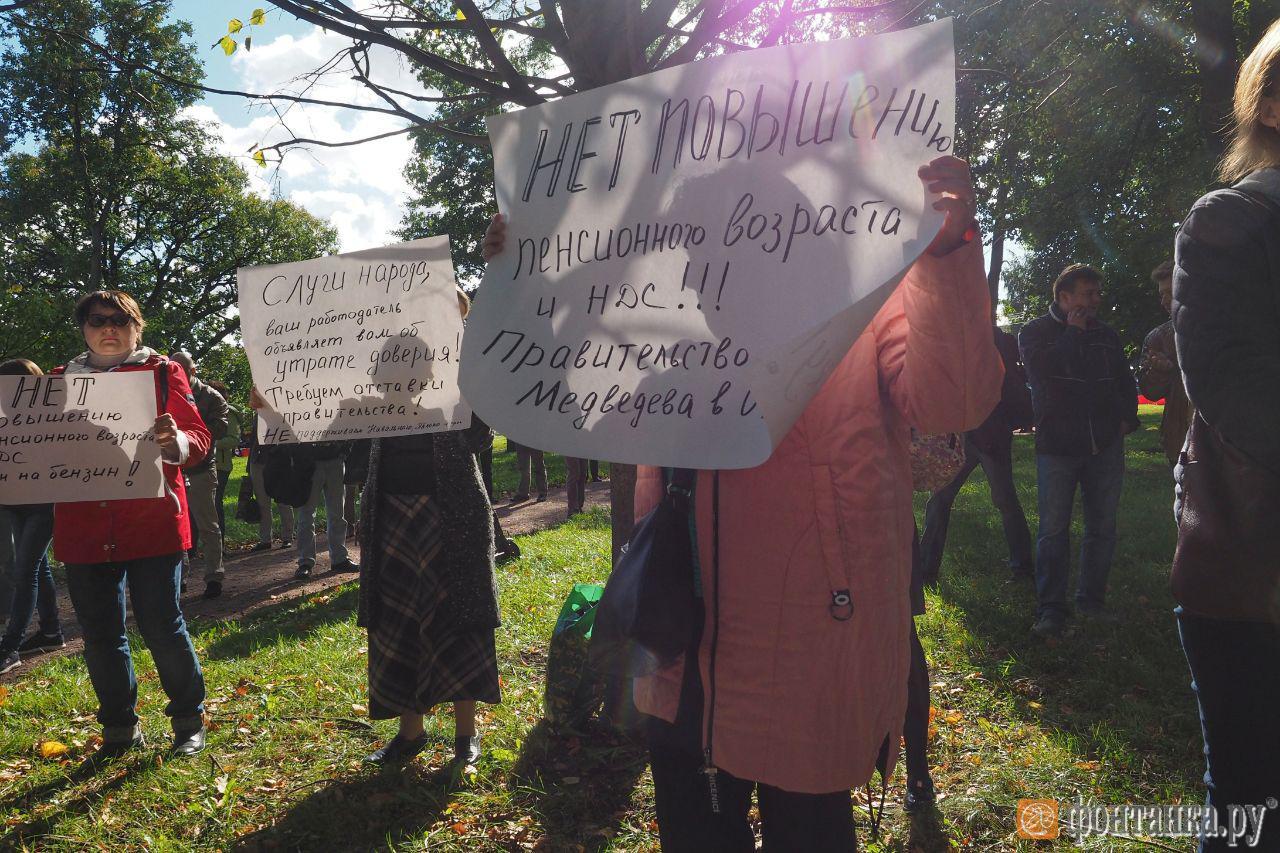 НЕТ
повышению
пенсионного возраста
НДС
и на бензин!
Слуги народа,
ваш работодатель
объявляет вам об
утрате доверия!
Требуем отставки
правительства!
НЕ поддерживаем Навального,
НЕТ ПОВЫШЕНИЮ
пенсионного возраста
и НДС!!!
Правительство
Медведева в
фонтанка.ру